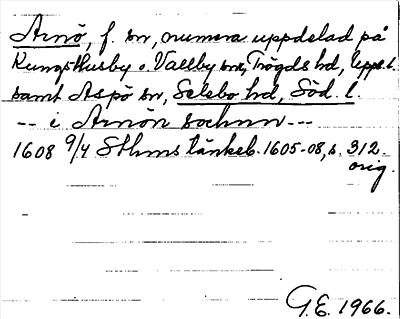 Arnö, f. sn, numera uppdelad på
Kungshusby o. Vallby snr, Trögds hd, Upps. l.
samt Aspö sn, Selebo hd, Söd. l.
-- i Arnön sochnn ---
1608 9/4 Sthms tänkeb. 1605-08, s. 312.
orig.
G.E. 1966.